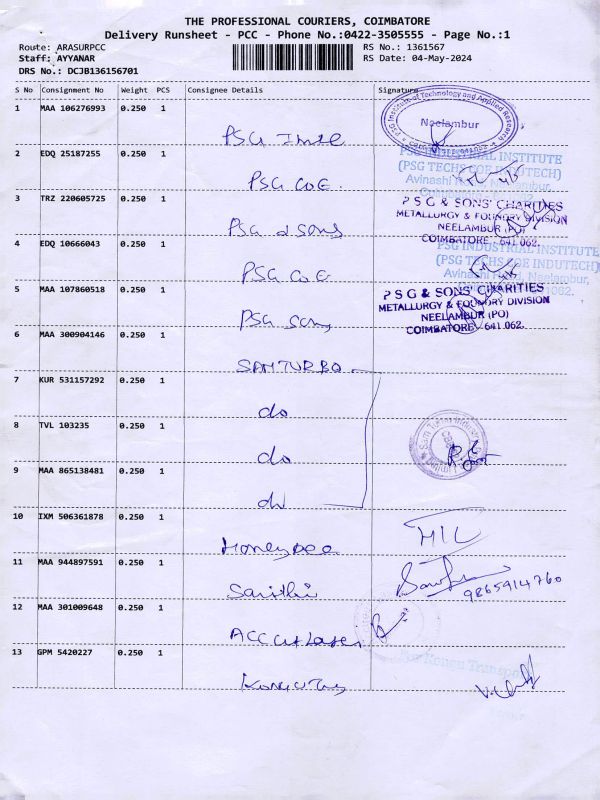 THE PROFESSIONAL COURIERS, COIMBATORE
Delivery Runsheet - PCC - Phone No.:0422-3505555 - Page No.:1
Route: ARASURPCC
RS No.: 1361567
Staff: AYYANAR
RS Date: 04-May-2024
DRS No.: DCJB136156701
S No Consignment No Weight PCS Consignee Details Signature
1 MAA 106276993 0.250 1
PSG Institute of Technology and Applied Research
Neelambur
2 EDQ 25187255 0.250 1
PSG INDUSTRIAL INSTITUTE
(PSG TECHS COE INDUTECH)
Avinashi Road, Neelambur,
PSG COE
3 TRZ 220605725 0.250 1
PSG & SONS' CHARITIES
METALLURGY & FOUNDRY DIVISION
NEELAMBUR (PO)
COIMBATORE - 641 062.
PSG & Sons
4 EDQ 10666043 0.250 1
PSG INDUSTRIAL INSTITUTE
(PSG TECHS COE INDUTECH)
Avinashi Road, Neelambur,
PSG COE
5 MAA 107860518 0.250 1
PSG & SONS' CHARITIES
METALLURGY & FOUNDRY DIVISION
NEELAMBUR (PO)
COIMBATORE - 641 062.
PSG Sons
6 MAA 300904146 0.250 1
SAM TURBO
7 KUR 531157292 0.250 1
do
8 TVL 103235 0.250 1
do
9 MAA 865138481 0.250 1
do
10 IXM 506361878 0.250 1
11 MAA 944897591 0.250 1
9865914760
12 MAA 301009648 0.250 1
13 GPM 5420227 0.250 1
Kongu Transport